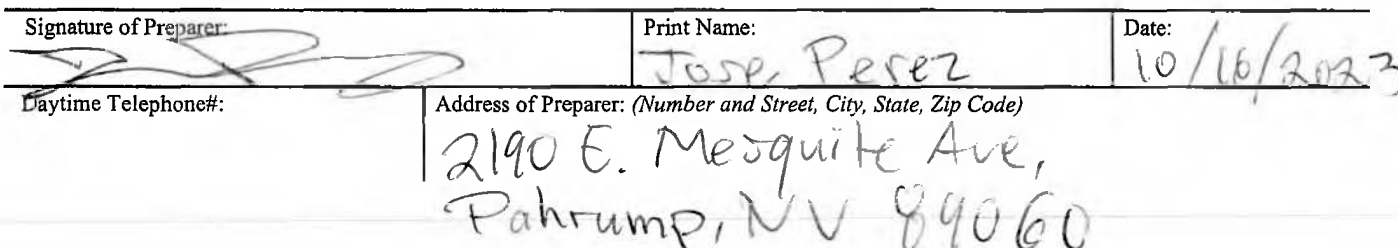 Signature of Preparer:
Print Name:
Date:
Jose Perez
10/16/2023
Daytime Telephone#:
Address of Preparer: (Number and Street, City, State, Zip Code)
2190 E. Mesquite Ave,
Pahrump, NV 89060